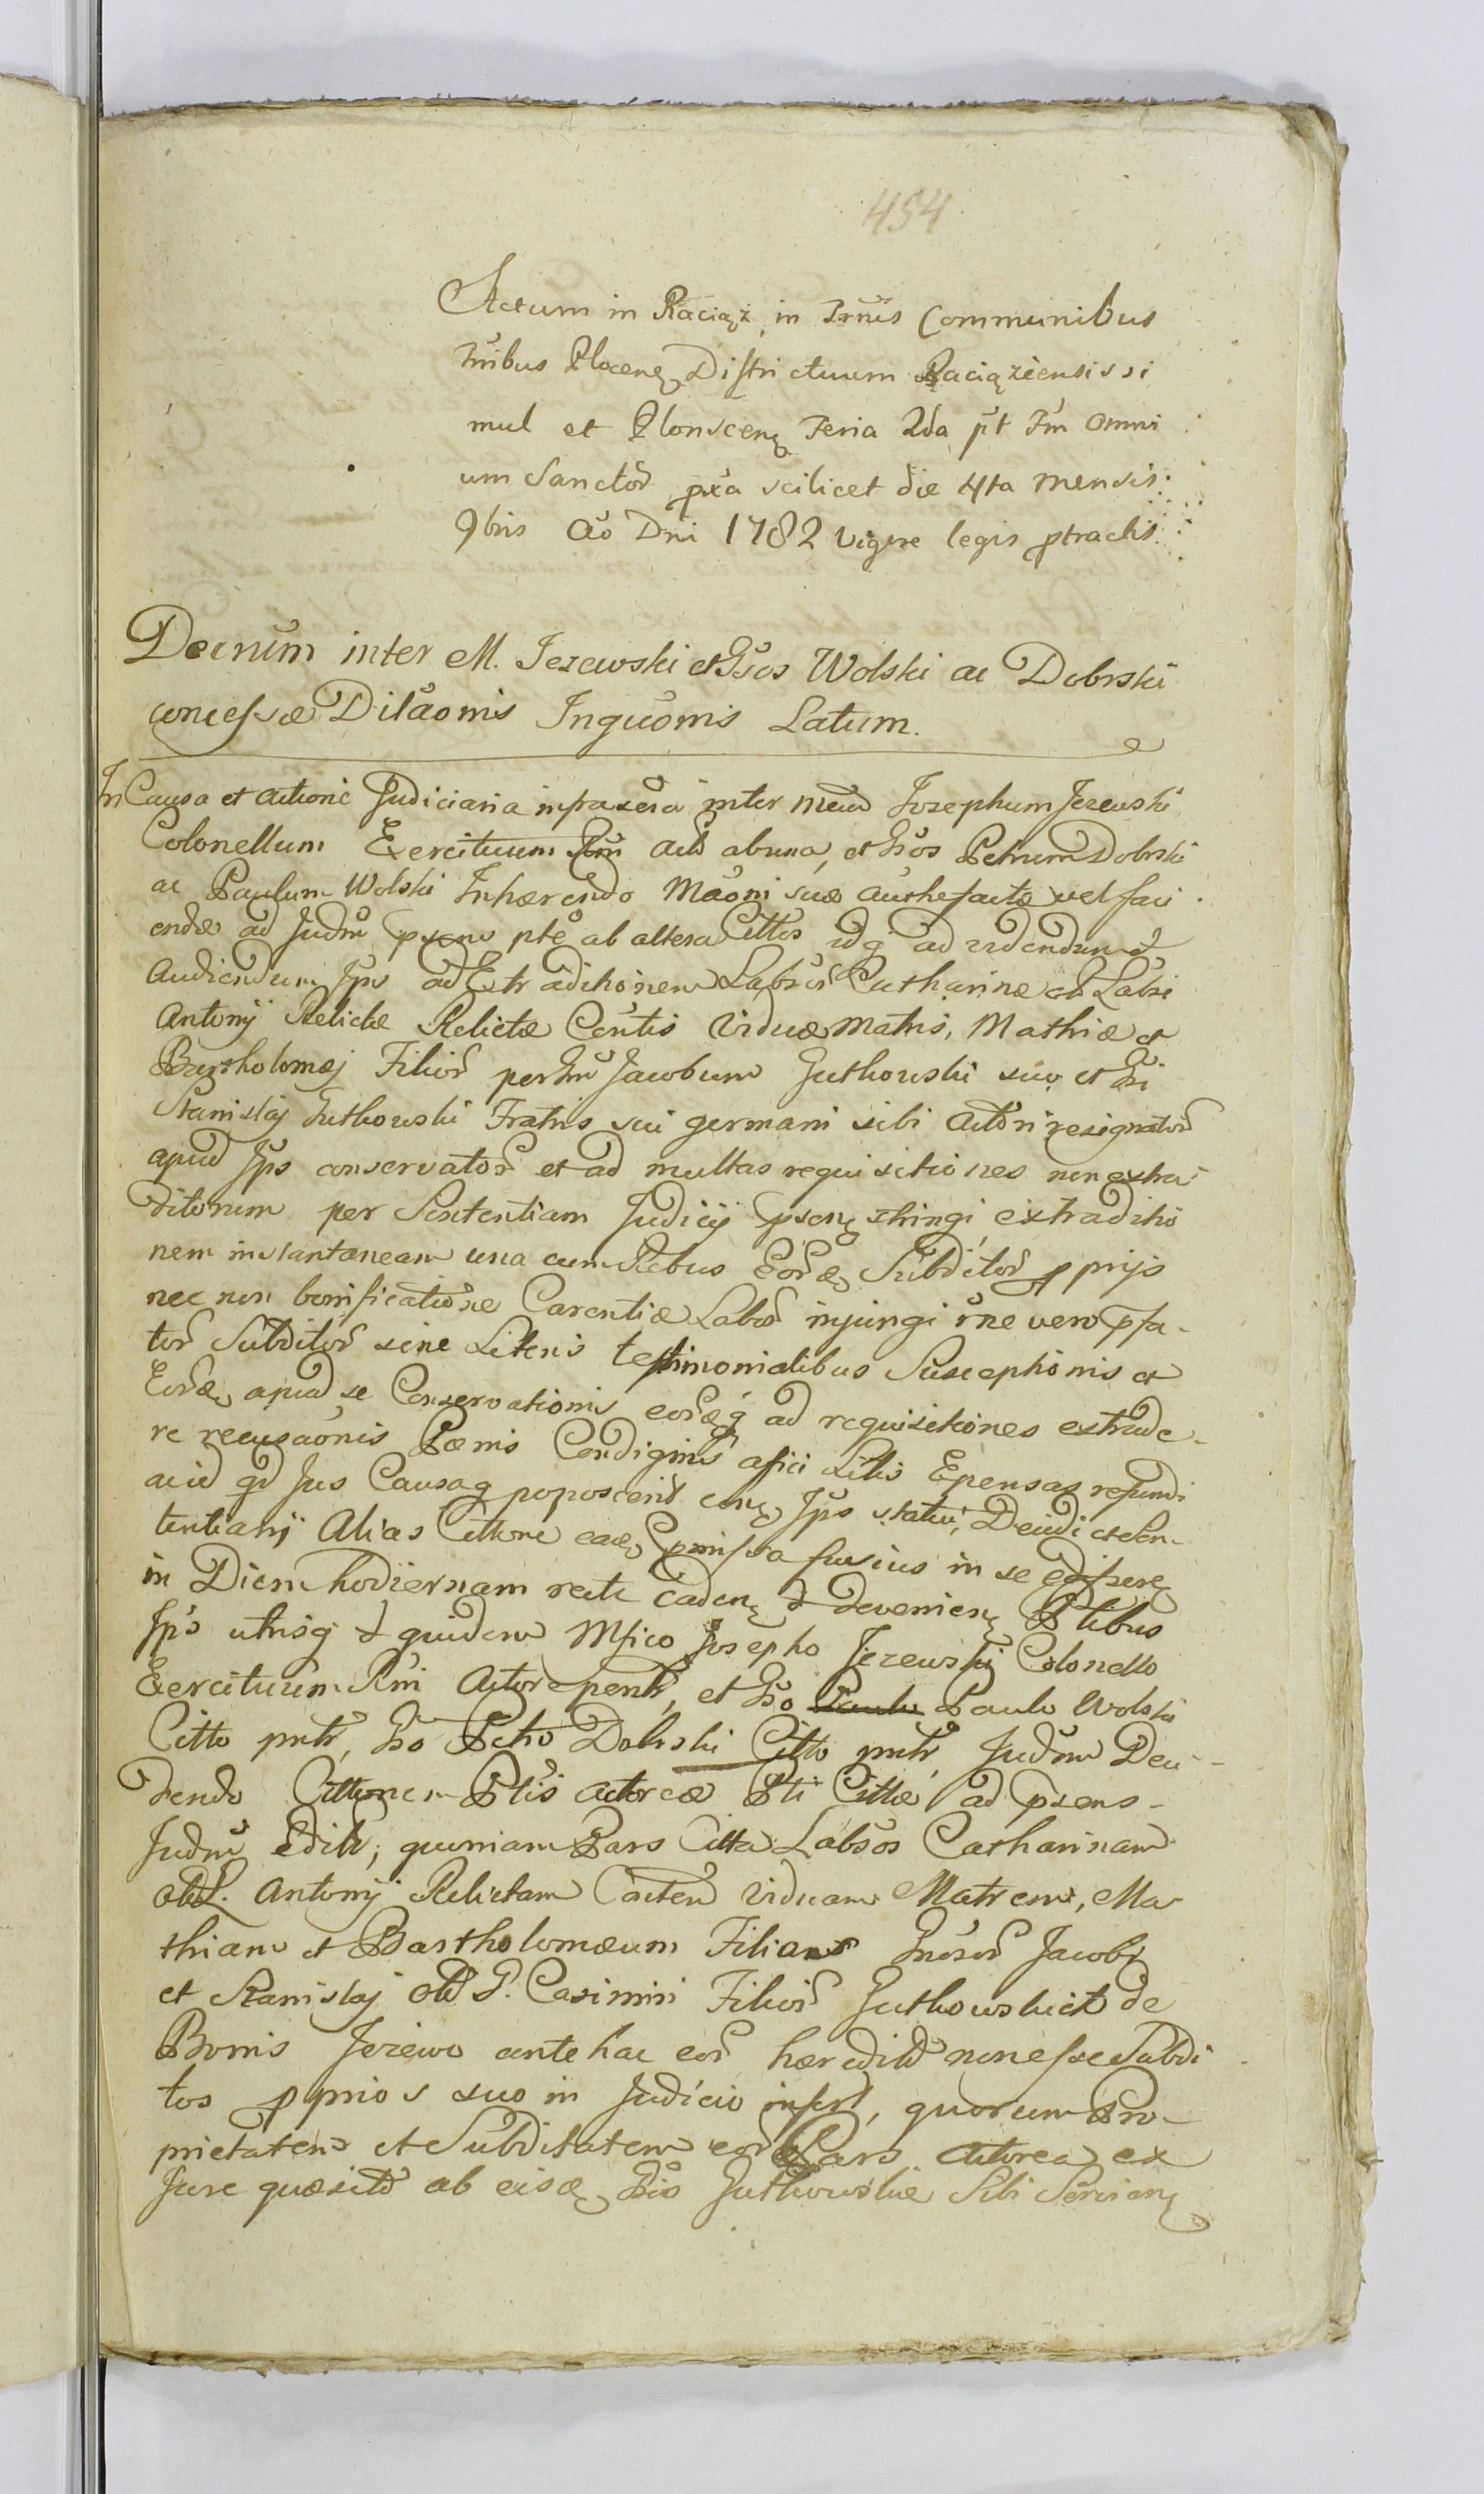 454
Actum in Raciąż in Trnis Communibus
Tnibus Plocenę Districtuum Raciążiensis si
mul et Plonscenę Feria 2da pt Fm omni
um Sanctor pxa scilicet die 4ta mensis
9bris Ao Dni 1782 vigore legis ptractis
Decrum inter M. Jezewski et Gsos Wolski ac Dobrski
concessæ Dilaonis Inquonis Latum.
In Causa et actione Judiciaria infraxsa inter Mcum Josephum Jezewski
Colonellum Exercituum Rm Act ab una, et Gsos Petrum Dobrski
ac Paulum Wolski Inhærendo Maoni suæ factæ vel faci
endæ ad Judm psens pte ab altera Cittos idq ad videndum et
Audiendum Ips ad Extraditionem Labsor Catharinæ Labsi
Antonij Relictæ Centis Viduæ Matris, Mathiæ et
Bartholomæj Filior per Gsm Jacobum Gutkowski suo et Gsi
Stanislaj Gutkowski Fratris sui germani sibi Actori resignator
apud Ips conservator et ad multas requisitiones non extra
ditorum per Sententiam Judicij psenę stringi, extraditio
nem instantaneam una cum Rebus Eorę Subditor pprijs
nec non bonificatione Carentiæ Labor injungi rne vero pfa-
tor Subditor sine Literis testimonialibus Susceptionis et
Eorę apud se Conservationis eoręq ad requisitiones extrade-
re recusaonis Pænis Condignis afici Litis Expensas refundi
aliud qd Jus Causaq poposcerit cirę Ips statui, Decidi et Sen-
tentiarij Alias Cittone eaę pmissa fusius in se
in Diem hodiernam recte Cadenę et devenienę Ptibus
Ips utrisq et quidem Mfico Josepho Jezewski Colonello
Exercituum Rni Actore pentr, et Gso Paulo Paulo Wolski
Citto pntr, Gso Petro Dobrski Citto pntr, Judm Deci-
dendo Cittonem Ptis actoreæ Pti Cittæ ad psens-
Judm Editt; quoniam Pars Citta Labsos Catharinam
Antonij Relictam Viduam Matrem, Ma
thiam et Bartholomæum Filios Gnosor Jacobi
et Stanislaj Casimiri Filior Gutkowskict de
Bonis Jezewo ante hac eor hæredit non esse Subdi
tos pprios suo in Judicio infert, quorum Pro-
prietatem et Subditatem eorę Pars Actorea ex
Jure quæsito ab eisę Gsis Gutkowskie Sibi Servienę